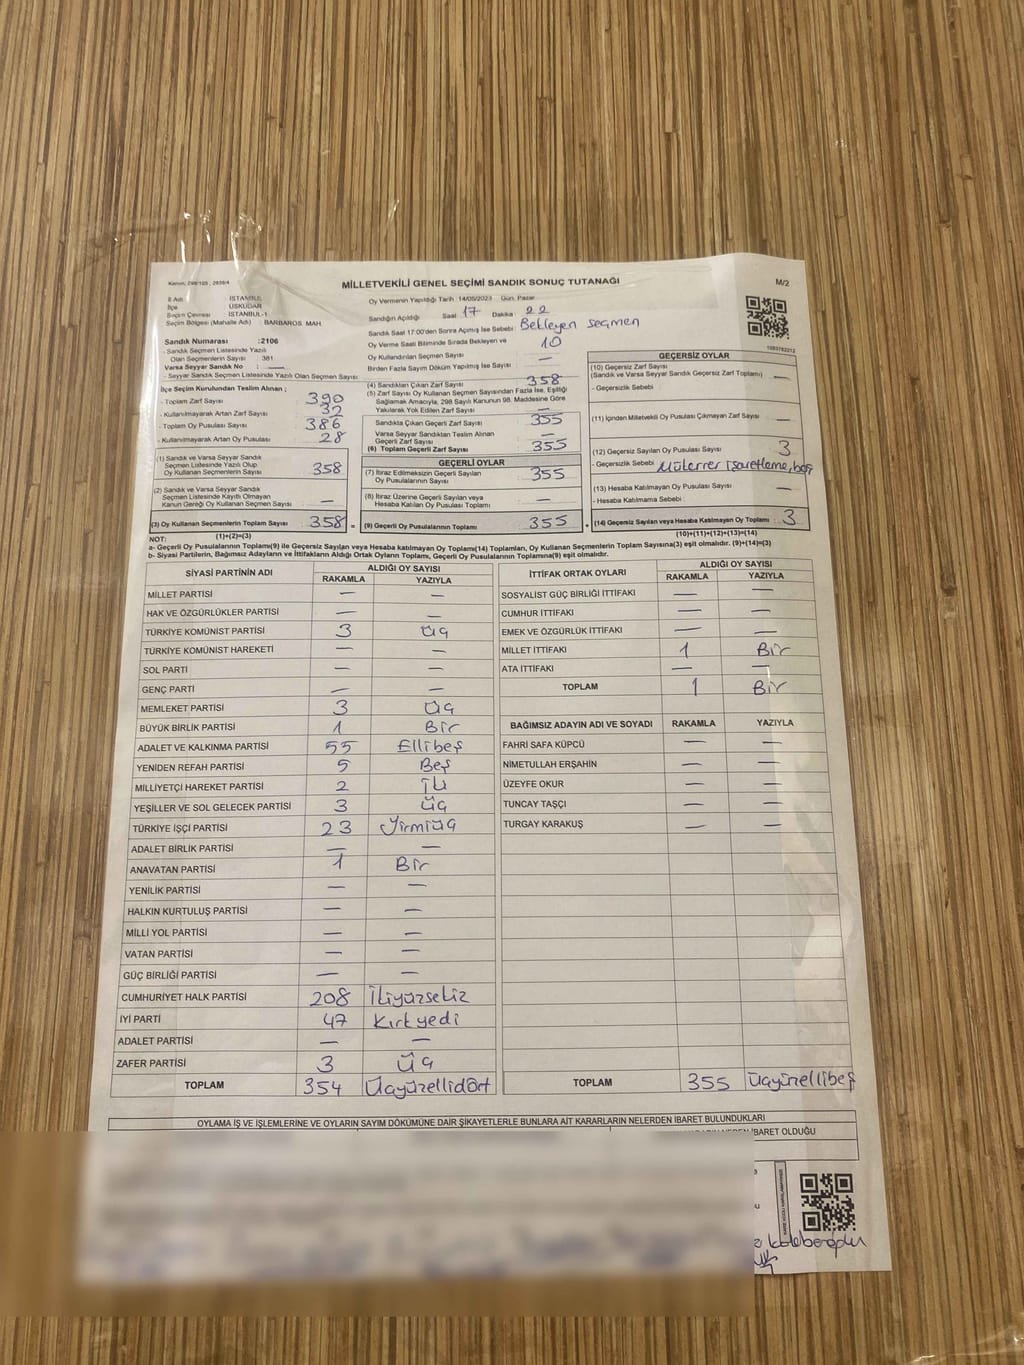 Kanun: 298/105, 2839/4
MİLLETVEKİLİ GENEL SEÇİMİ SANDIK SONUÇ TUTANAĞI
M/2
İl Adı : İSTANBUL
İlçe : ÜSKÜDAR
Seçim Çevresi : İSTANBUL-1
Seçim Bölgesi (Mahalle Adı) : BARBAROS MAH.
Oy Vermenin Yapıldığı Tarih :14/05/2023 Gün: Pazar
Sandığın Açıldığı : Saat 17 Dakika : 22
Sandık Saat 17:00'den Sonra Açılmış İse Sebebi: Bekleyen seçmen
Oy Verme Saati Bitiminde Sırada Bekleyen ve
Oy Kullandırılan Seçmen Sayısı : 10
Birden Fazla Sayım Döküm Yapılmış İse Sayısı : —
Sandık Numarası :2106
- Sandık Seçmen Listesinde Yazılı
Olan Seçmenlerin Sayısı : 381
Varsa Seyyar Sandık No : —
- Seyyar Sandık Seçmen Listesinde Yazılı Olan Seçmen Sayısı:
İlçe Seçim Kurulundan Teslim Alınan ;
- Toplam Zarf Sayısı : 390
- Kullanılmayarak Artan Zarf Sayısı : 32
- Toplam Oy Pusulası Sayısı : 386
- Kullanılmayarak Artan Oy Pusulası : 28
(1) Sandık ve Varsa Seyyar Sandık
Seçmen Listesinde Yazılı Olup
Oy Kullanan Seçmenlerin Sayısı 358
(2) Sandık ve Varsa Seyyar Sandık
Seçmen Listesinde Kayıtlı Olmayan
Kanun Gereği Oy Kullanan Seçmen Sayısı —
(3) Oy Kullanan Seçmenlerin Toplam Sayısı 358 =
(1)+(2)=(3)
(4) Sandıktan Çıkan Zarf Sayısı : 358
(5) Zarf Sayısı Oy Kullanan Seçmen Sayısından Fazla İse, Eşitliği
Sağlamak Amacıyla, 298 Sayılı Kanunun 98. Maddesine Göre
Yakılarak Yok Edilen Zarf Sayısı : —
Sandıkta Çıkan Geçerli Zarf Sayısı : 355
Varsa Seyyar Sandıktan Teslim Alınan
Geçerli Zarf Sayısı : —
(6) Toplam Geçerli Zarf Sayısı : 355
GEÇERLİ OYLAR
(7) İtiraz Edilmeksizin Geçerli Sayılan
Oy Pusulalarının Sayısı : 355
(8) İtiraz Üzerine Geçerli Sayılan veya
Hesaba Katılan Oy Pusulası Sayısı : —
(9) Geçerli Oy Pusulalarının Toplamı : 355 +
1083782212
GEÇERSİZ OYLAR
(10) Geçersiz Zarf Sayısı
(Sandık ve Varsa Seyyar Sandık Geçersiz Zarf Toplamı) : —
- Geçersizlik Sebebi :
(11) İçinden Milletvekili Oy Pusulası Çıkmayan Zarf Sayısı : —
(12) Geçersiz Sayılan Oy Pusulası Sayısı : 3
- Geçersizlik Sebebi : Mükerrer işaretleme, boş
(13) Hesaba Katılmayan Oy Pusulası Sayısı : —
- Hesaba Katılmama Sebebi :
(14) Geçersiz Sayılan veya Hesaba Katılmayan Oy Toplamı : 3
(10)+(11)+(12)+(13)=(14)
NOT:
a- Geçerli Oy Pusulalarının Toplamı(9) ile Geçersiz Sayılan veya Hesaba katılmayan Oy Toplamı(14) Toplamları, Oy Kullanan Seçmenlerin Toplam Sayısına(3) eşit olmalıdır. (9)+(14)=(3)
b- Siyasi Partilerin, Bağımsız Adayların ve İttifakların Aldığı Ortak Oyların Toplamı, Geçerli Oy Pusulalarının Toplamına(9) eşit olmalıdır.
SİYASİ PARTİNİN ADI ALDIĞI OY SAYISI
RAKAMLA YAZIYLA
MİLLET PARTİSİ — —
HAK VE ÖZGÜRLÜKLER PARTİSİ — —
TÜRKİYE KOMÜNİST PARTİSİ 3 üç
TÜRKİYE KOMÜNİST HAREKETİ — —
SOL PARTİ — —
GENÇ PARTİ — —
MEMLEKET PARTİSİ 3 üç
BÜYÜK BİRLİK PARTİSİ 1 Bir
ADALET VE KALKINMA PARTİSİ 55 Ellibeş
YENİDEN REFAH PARTİSİ 5 Beş
MİLLİYETÇİ HAREKET PARTİSİ 2 iki
YEŞİLLER VE SOL GELECEK PARTİSİ 3 üç
TÜRKİYE İŞÇİ PARTİSİ 23 Yirmiüç
ADALET BİRLİK PARTİSİ — —
ANAVATAN PARTİSİ 1 Bir
YENİLİK PARTİSİ — —
HALKIN KURTULUŞ PARTİSİ — —
MİLLİ YOL PARTİSİ — —
VATAN PARTİSİ — —
GÜÇ BİRLİĞİ PARTİSİ — —
CUMHURİYET HALK PARTİSİ 208 İkiyüzsekiz
İYİ PARTİ 47 Kırkyedi
ADALET PARTİSİ — —
ZAFER PARTİSİ 3 üç
TOPLAM 354 Üçyüzellidört
İTTİFAK ORTAK OYLARI ALDIĞI OY SAYISI
RAKAMLA YAZIYLA
SOSYALİST GÜÇ BİRLİĞİ İTTİFAKI — —
CUMHUR İTTİFAKI — —
EMEK VE ÖZGÜRLÜK İTTİFAKI — —
MİLLET İTTİFAKI 1 Bir
ATA İTTİFAKI — —
TOPLAM 1 Bir
BAĞIMSIZ ADAYIN ADI VE SOYADI RAKAMLA YAZIYLA
FAHRİ SAFA KÜPCÜ — —
NİMETULLAH ERŞAHİN — —
ÜZEYFE OKUR — —
TUNCAY TAŞÇI — —
TURGAY KARAKUŞ — —
TOPLAM 355 Üçyüzellibeş
OYLAMA İŞ VE İŞLEMLERİNE VE OYLARIN SAYIM DÖKÜMÜNE DAİR ŞİKAYETLERLE BUNLARA AİT KARARLARIN NELERDEN İBARET BULUNDUKLARI
İBARET OLDUĞU